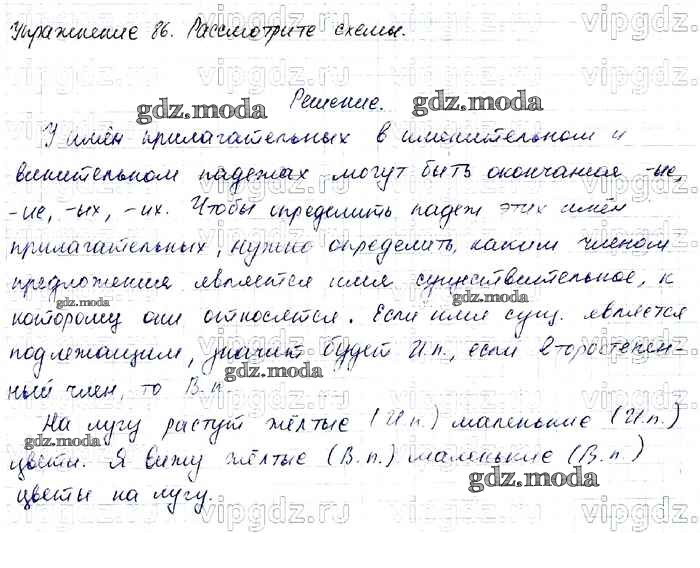 Упражнение 86. Рассмотрите схемы.
Решение.
У имён прилагательных в именительном и
винительном падежах могут быть окончания -ые,
-ие, -ых, -их. Чтобы определить падеж этих имён
прилагательных, нужно определить, каким членом
предложения является имя существительное, к
которому они относятся. Если имя сущ. является
подлежащим, значит будет И.п., если второстепен-
ный член, то В.п.
На лугу растут жёлтые (И.п.) маленькие (И.п.)
цветы. Я вижу жёлтые (В.п.) маленькие (В.п.)
цветы на лугу.